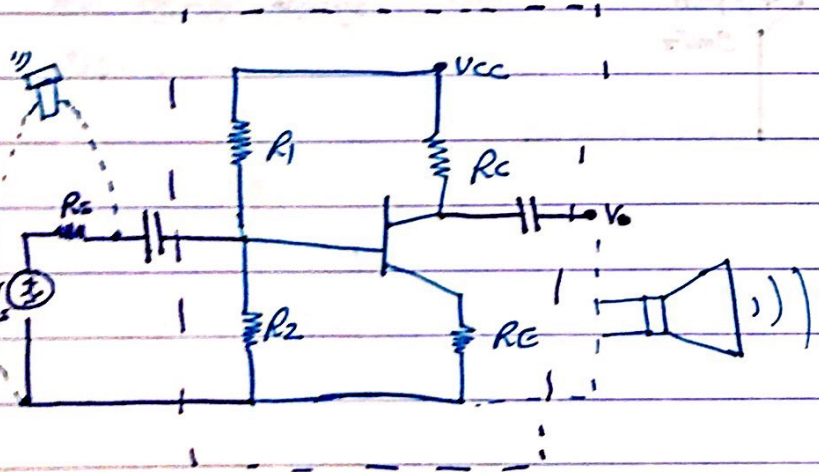 VCC
R1
RC
Rs
Vo
R2
RE